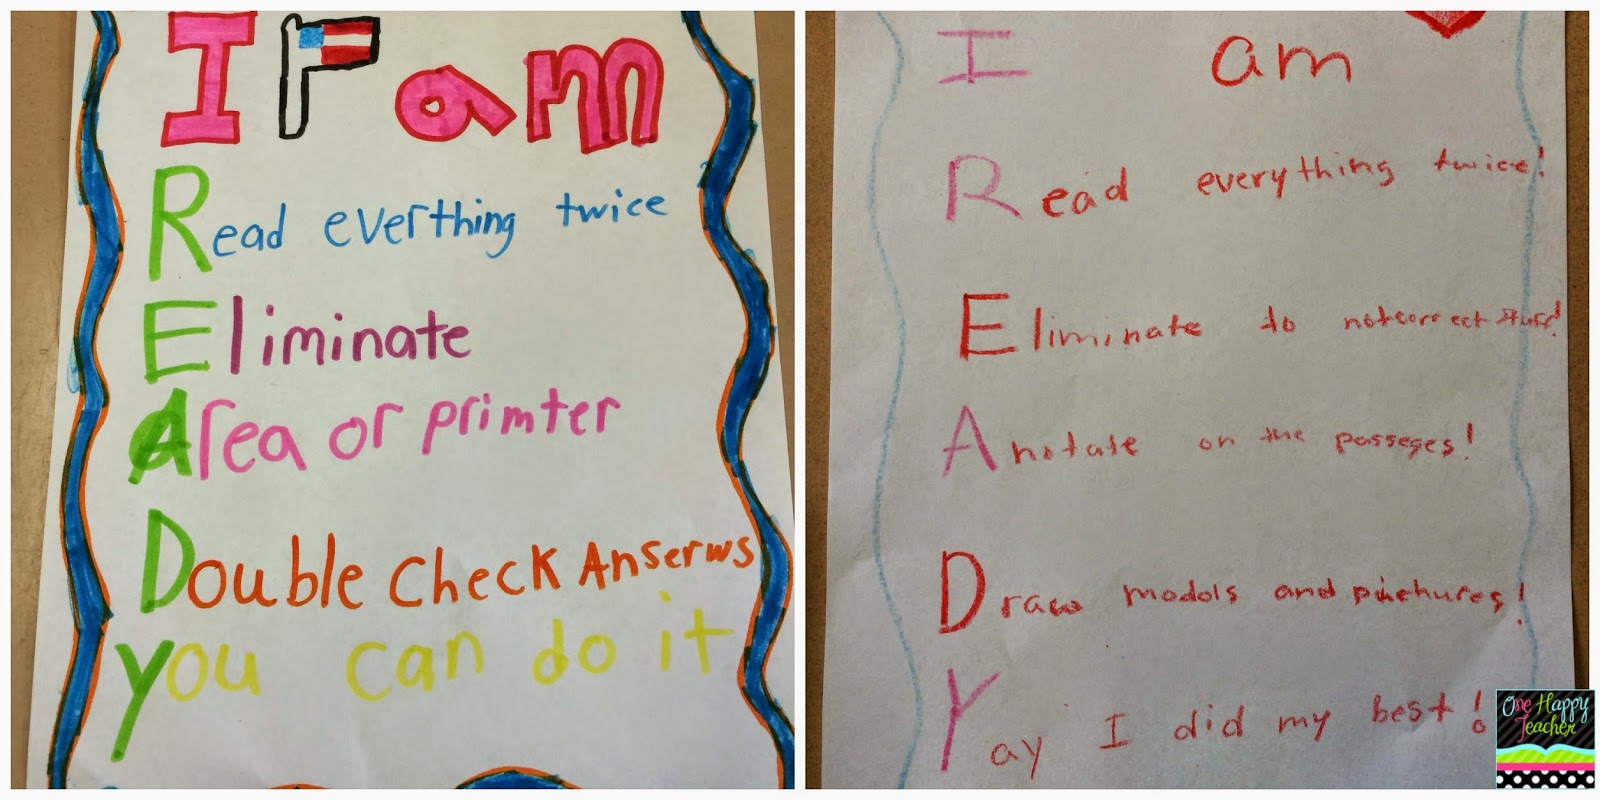 I am
Read everthing twice
Eliminate
Area or primter
Double check Anserws
you can do it
I am
Read everything twice!
Eliminate to notcorrect stuff!
Anotate on the passeges!
Draw modols and pichures!
Yay I did my best!
One Happy
Teacher